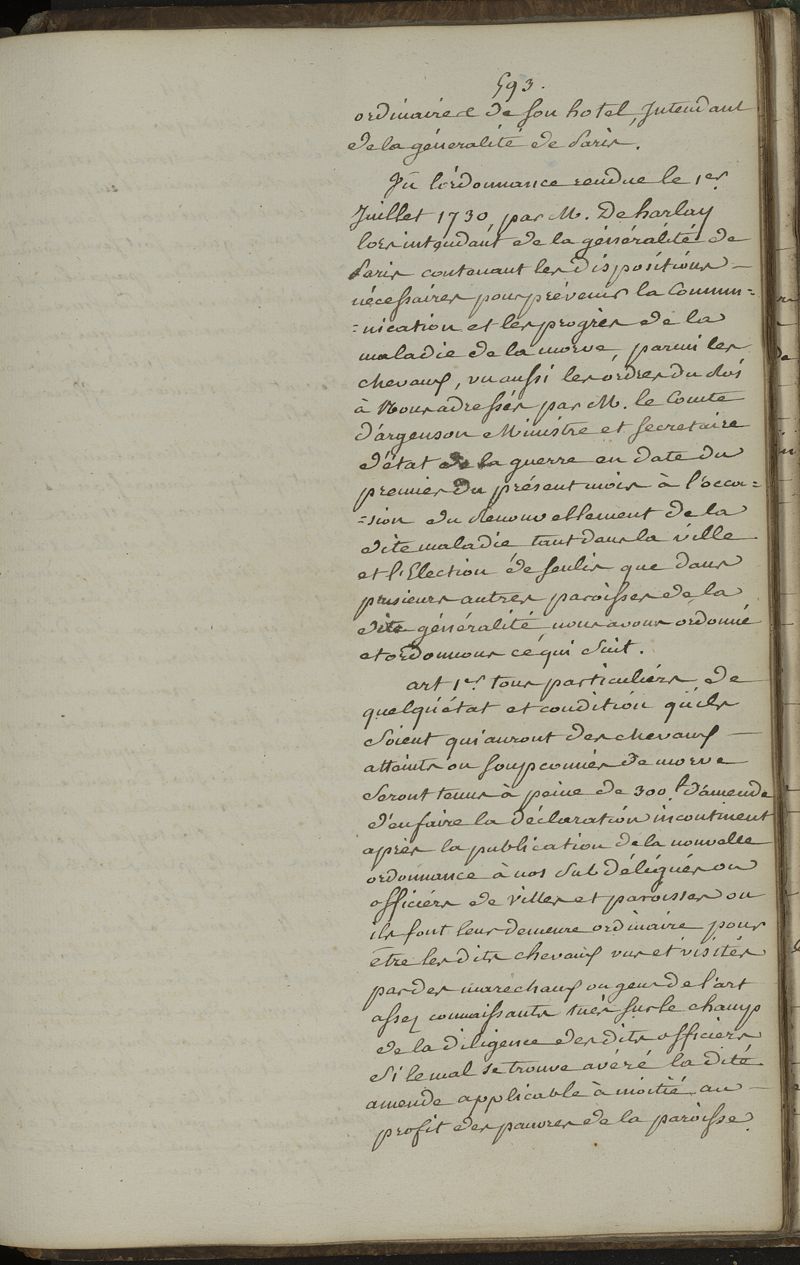 593.
ordinaire de son hotel, Intendant
de la généralité de Paris.
Vu l'ordonnance rendue le 1er
Juillet 1730, par M. De harlay
lors intendant de la généralité de
Paris contenant les dispositions —
nécessaires pour prévenir la Commu-
=nication et les progrès de la
maladie de la morve, parmi les
chevaux, vu aussi les ordres du Roi
à Nous adressés par M. le Comte
d'argenson Ministre et secretaire
d'état de la guerre en date du
premier du présent mois à l'occa=
=sion du Renouvellement de la
dite maladie tant dans la ville
et l'Election de senlis que dans
plusieurs autres paroisses de la
dite généralité nous avons ordonné
et ordonnons ce qui suit.
art 1er. tous particuliers de
quelqu'état et condition qu'ils
soient qui auront des chevaux —
attaints ou soupconnés de morve
seront tenus à peine de 300.l d'amende
d'en faire la déclaration incontinent
après la publication de la nouvelle
ordonnance à nos Subdélégués ou
officiers de villes et paroisses ou
ils font leur demeure ordinaire pour
être les dits chevaux vus et visités
par des marechaux ou gens de l'art
assez connaissants tués sur le champ
de la diligence des dits officiers
si le mal se trouve avéré la dite
amende applicable à moitié au —
profit des pauvres de la paroisse